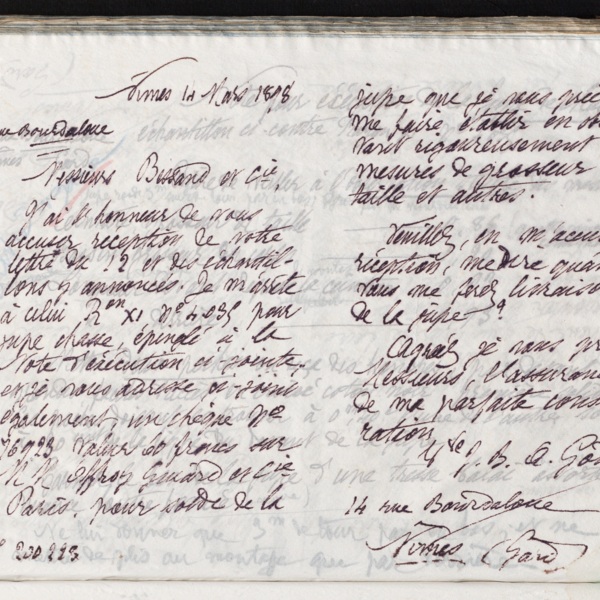 Nimes 14 Mars 1898
rue Bourdaloue
Messieurs Bissand et cie,
J'ai l'honneur de vous
accuser réception de votre
lettre du 12 et des échantil-
lons y annoncés. Je m'arrête
à celui Ron XI No 4035 pour
jupe chasse, épinglé à la
Note d'exécution ci-jointe,
et je vous adresse ci-joint
également, un chèque No
76923 valeur 60 francs sur
M. Offroy Guiard et cie
Paris, pour solde de la
200.223
jupe que je vous prie
me faire établir en ob
vant rigoureusement
mesures de grosseur
taille et autres.
Veuillez, en m'accu
réception, me dire quan
vous me ferez livraiso
de la jupe?
Agréez je vous pr
Messieurs, l'assuran
de ma parfaite cons
ration,
14 rue Bourdaloue
Nimes (Gard)